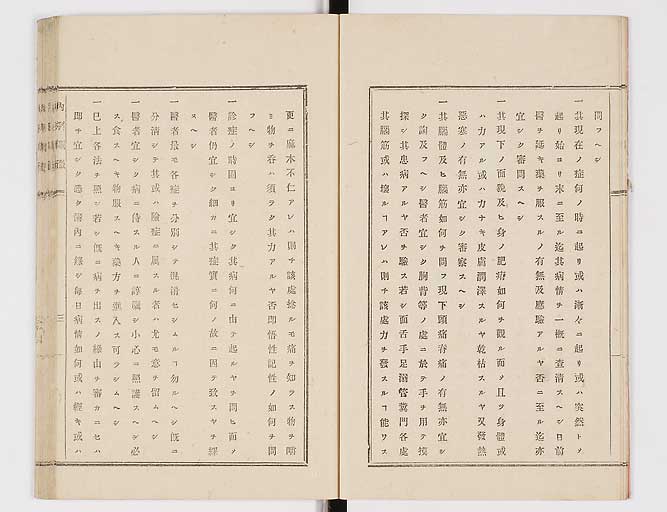 問フヘシ
一其現在ノ症何ノ時ニ起リ或ハ漸々ニ起リ或ハ突然トノ
起リ始ヨリ末ニ至ル迄其病情ヲ一概ニ査清スヘシ日前
醫ヲ延キ藥ヲ服スルノ有無及應驗アルヤ否ニ至ル迄亦
宜シク審問スヘシ
一其現下ノ面貌及ヒ身ノ肥瘠如何ヲ觀ル而ノ且ツ身體或
ハ力アル或ハ力ナキ皮膚潤澤スルヤ乾枯スルヤ又發熱
惡寒ノ有無亦宜シク審察スヘシ
一其腦體及ヒ腦筋如何ヲ問フ現下頭痛脊痛ノ有無亦宜シ
ク詢及フヘシ醫者宜シク胸背等ノ處ニ於テ手ヲ用テ摸
探シ其患病アルヤ否ヲ驗ス若シ面舌手足溺管糞門各處
其腦筋或ハ壞ルヿアレハ則チ該處力ヲ發スルヿ能ワス
更ニ麻木不仁アレハ則チ該處捻ルモ痛ヲ知ラス物ヲ嚼
ミ物ヲ呑ハ須ラク其力アルヤ否卽悟性記性ノ如何ヲ問
フヘシ
一診症ノ時固ヨリ宜シク其病何ニ由テ起ルヤヲ問ヒ而ノ
醫者仍宜シク細カニ其症實ニ何ノ故ニ因テ致スヤヲ繹
スヘシ
一醫者最モ各症ヲ分別シテ混淆セシムルヿ勿ルヘシ既ニ
分清シテ其或ハ險症ニ属スル者ハ尤モ意ヲ留ムヘシ
一醫者宜シク病ニ侍スル人ニ諄囑シ小心ニ照護スヘシ必
ス食スヘキ物服スヘキ藥方ヲ ス可ラシムヘシ
一已上各法ヲ照シ若シ既ニ病ヲ出スノ縁由ヲ審カニセハ
卽チ宜シク悉ク簿內ニ錄シ每日病情如何或ハ輕キ或ハ
三